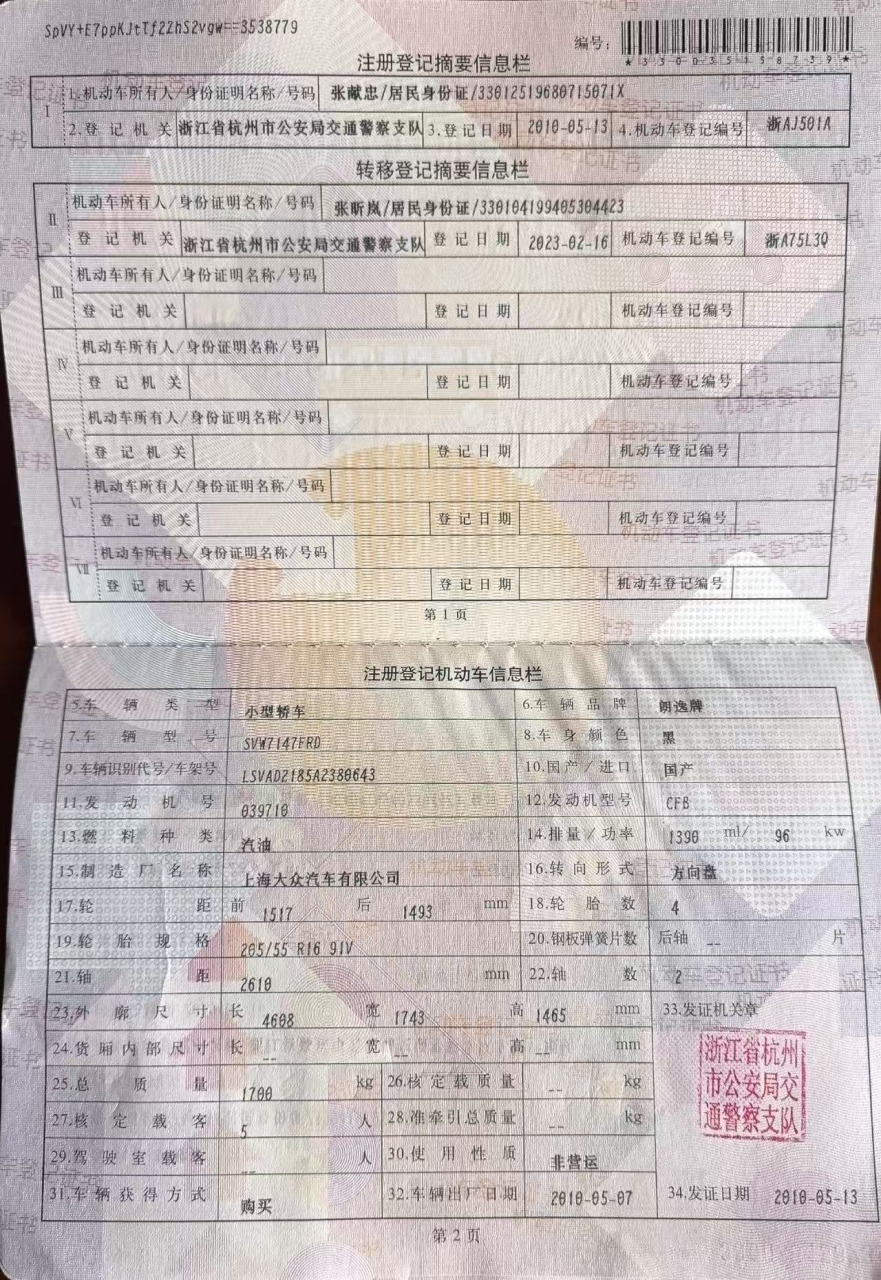 SpVY+E7ppKJtTf2ZhS2vgw==3538779
编号:
*330035158739*
注册登记摘要信息栏
I 1.机动车所有人/身份证明名称/号码 张献忠/居民身份证/33012519680715071X
2.登记机关 浙江省杭州市公安局交通警察支队 3.登记日期 2010-05-13 4.机动车登记编号 浙AJ501A
转移登记摘要信息栏
II 机动车所有人/身份证明名称/号码 张昕岚/居民身份证/330104199405304423
登记机关 浙江省杭州市公安局交通警察支队 登记日期 2023-02-16 机动车登记编号 浙A75L3Q
III 机动车所有人/身份证明名称/号码
登记机关 登记日期 机动车登记编号
IV 机动车所有人/身份证明名称/号码
登记机关 登记日期 机动车登记编号
V 机动车所有人/身份证明名称/号码
登记机关 登记日期 机动车登记编号
VI 机动车所有人/身份证明名称/号码
登记机关 登记日期 机动车登记编号
VII 机动车所有人/身份证明名称/号码
登记机关 登记日期 机动车登记编号
第1页
注册登记机动车信息栏
5.车辆类型 小型轿车 6.车辆品牌 朗逸牌
7.车辆型号 SVW7147FRD 8.车身颜色 黑
9.车辆识别代号/车架号 LSVAD2185A2380643 10.国产/进口 国产
11.发动机号 039710 12.发动机型号 CFB
13.燃料种类 汽油 14.排量/功率 1390 ml/ 96 kw
15.制造厂名称 上海大众汽车有限公司 16.转向形式 方向盘
17.轮距 前 1517 后 1493 mm 18.轮胎数 4
19.轮胎规格 205/55 R16 91V 20.钢板弹簧片数 后轴 -- 片
21.轴距 2610 mm 22.轴数 2
23.外廓尺寸 长 4608 宽 1743 高 1465 mm 33.发证机关章
24.货厢内部尺寸 长 -- 宽 -- 高 -- mm
浙江省杭州
市公安局交
通警察支队
25.总质量 1700 kg 26.核定载质量 -- kg
27.核定载客 5 人 28.准牵引总质量 -- kg
29.驾驶室载客 -- 人 30.使用性质 非营运
31.车辆获得方式 购买 32.车辆出厂日期 2010-05-07 34.发证日期 2010-05-13
第2页